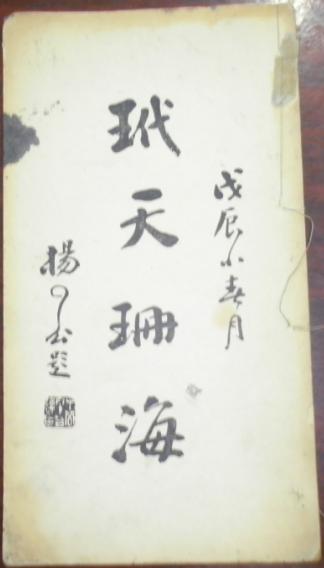 戊辰小春月
玳天珊海
楊了公題